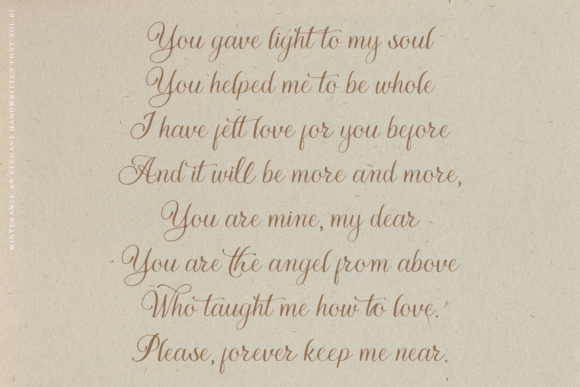 You gave light to my soul
You helped me to be whole
I have felt love for you before
And it will be more and more,
You are mine, my dear
You are the angel from above
Who taught me how to love.
Please, forever keep me near.
WINTERANTE AN ELEGANT HANDWRITTEN FONT VOL.01